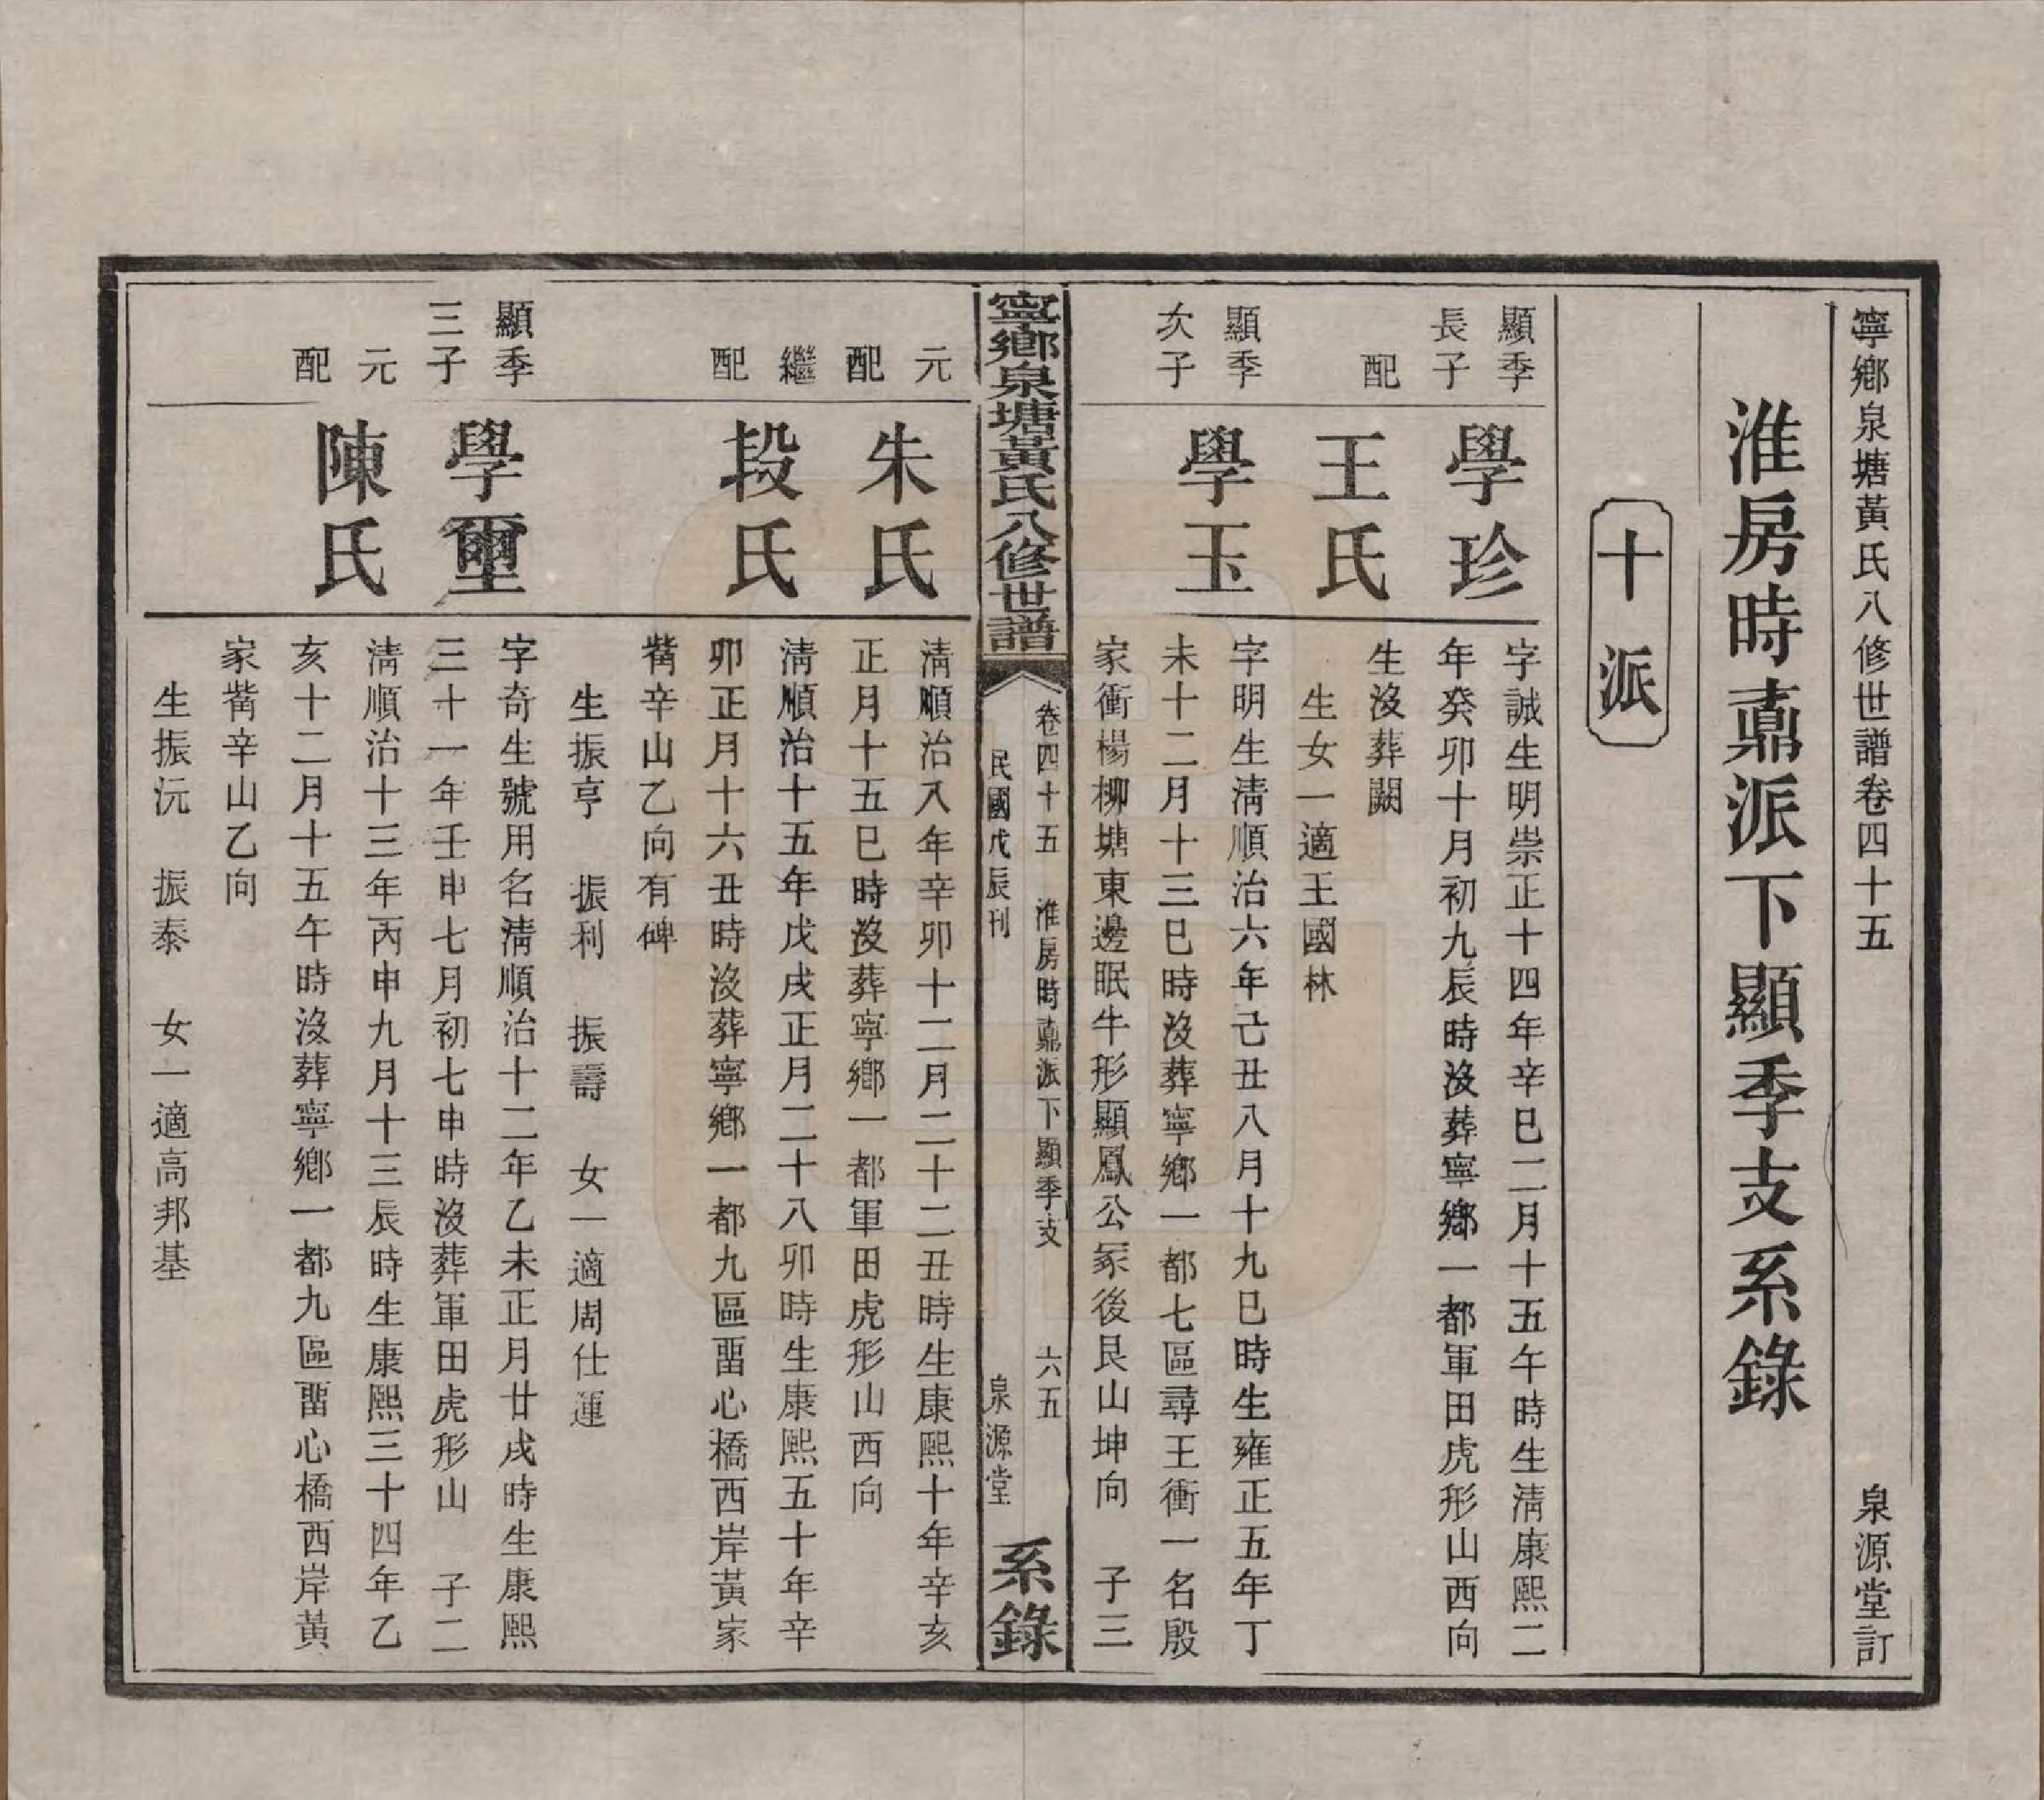 寧鄉泉塘黃氏八修世譜卷四十五
泉源堂訂
淮房時鼒派下顯季支系錄
十派
顯季
長子
學珍
字誠生明崇正十四年辛巳二月十五午時生清康熙二
年癸卯十月初九辰時沒葬寧鄉一都軍田虎形山西向
配
王氏
生沒葬闕
生女一適王國林
顯季
次子
學玉
字明生清順治六年己丑八月十九巳時生雍正五年丁
未十二月十三巳時沒葬寧鄉一都七區尋王衝一名殷
家衝楊柳塘東邊眠牛形顯鳳公冢後艮山坤向 子三
寧鄉泉塘黃氏八修世譜
卷四十五 淮房時鼒派下顯季支 六五
民國戊辰刊 泉源堂
系錄
元
配
朱氏
清順治八年辛卯十二月二十二丑時生康熙十年辛亥
正月十五巳時沒葬寧鄉一都軍田虎形山西向
繼
配
段氏
清順治十五年戊戌正月二十八卯時生康熙五十年辛
卯正月十六丑時沒葬寧鄉一都九區畱心橋西岸黃家
觜辛山乙向有碑
生振亨 振利 振壽 女一適周仕運
顯季
三子
學璽
字奇生號用名清順治十二年乙未正月廿戌時生康熙
三十一年壬申七月初七申時沒葬軍田虎形山 子二
元
配
陳氏
清順治十三年丙申九月十三辰時生康熙三十四年乙
亥十二月十五午時沒葬寧鄉一都九區畱心橋西岸黃
家觜辛山乙向
生振沅 振泰 女一適高邦基